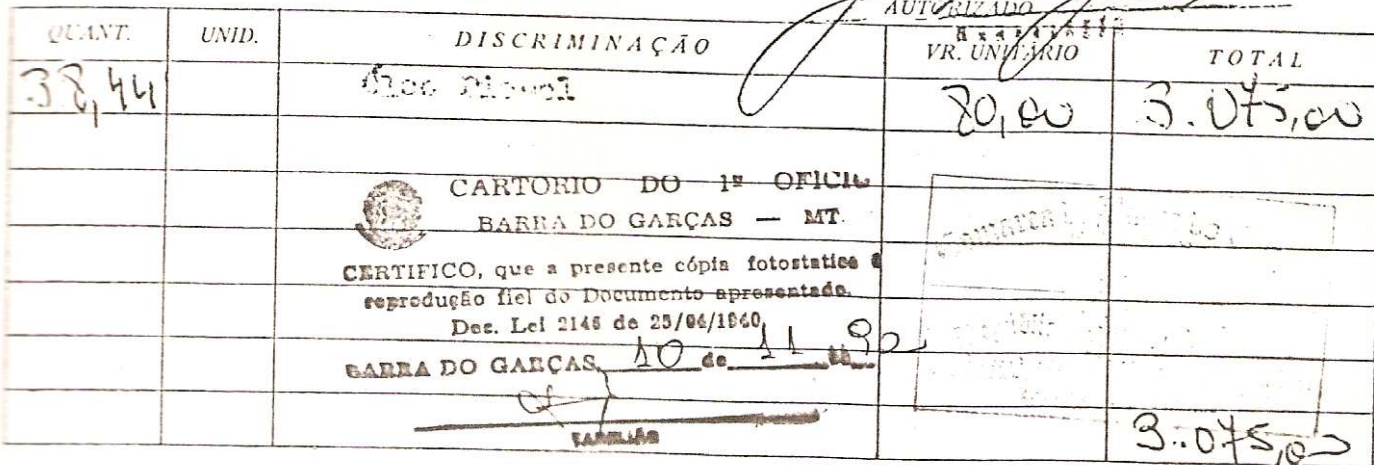 AUTORIZADO
QUANT. UNID. DISCRIMINAÇÃO VR. UNITÁRIO TOTAL
38,44 80,00 3.075,00
CARTORIO DO 1º OFICIO
BARRA DO GARÇAS — MT.
CERTIFICO, que a presente cópia fotostatica é
reprodução fiel do Documento apresentado.
Dec. Lei 2148 de 25/04/1940
BARRA DO GARÇAS, 10 de 11 90
TABELIÃO
3.075,00